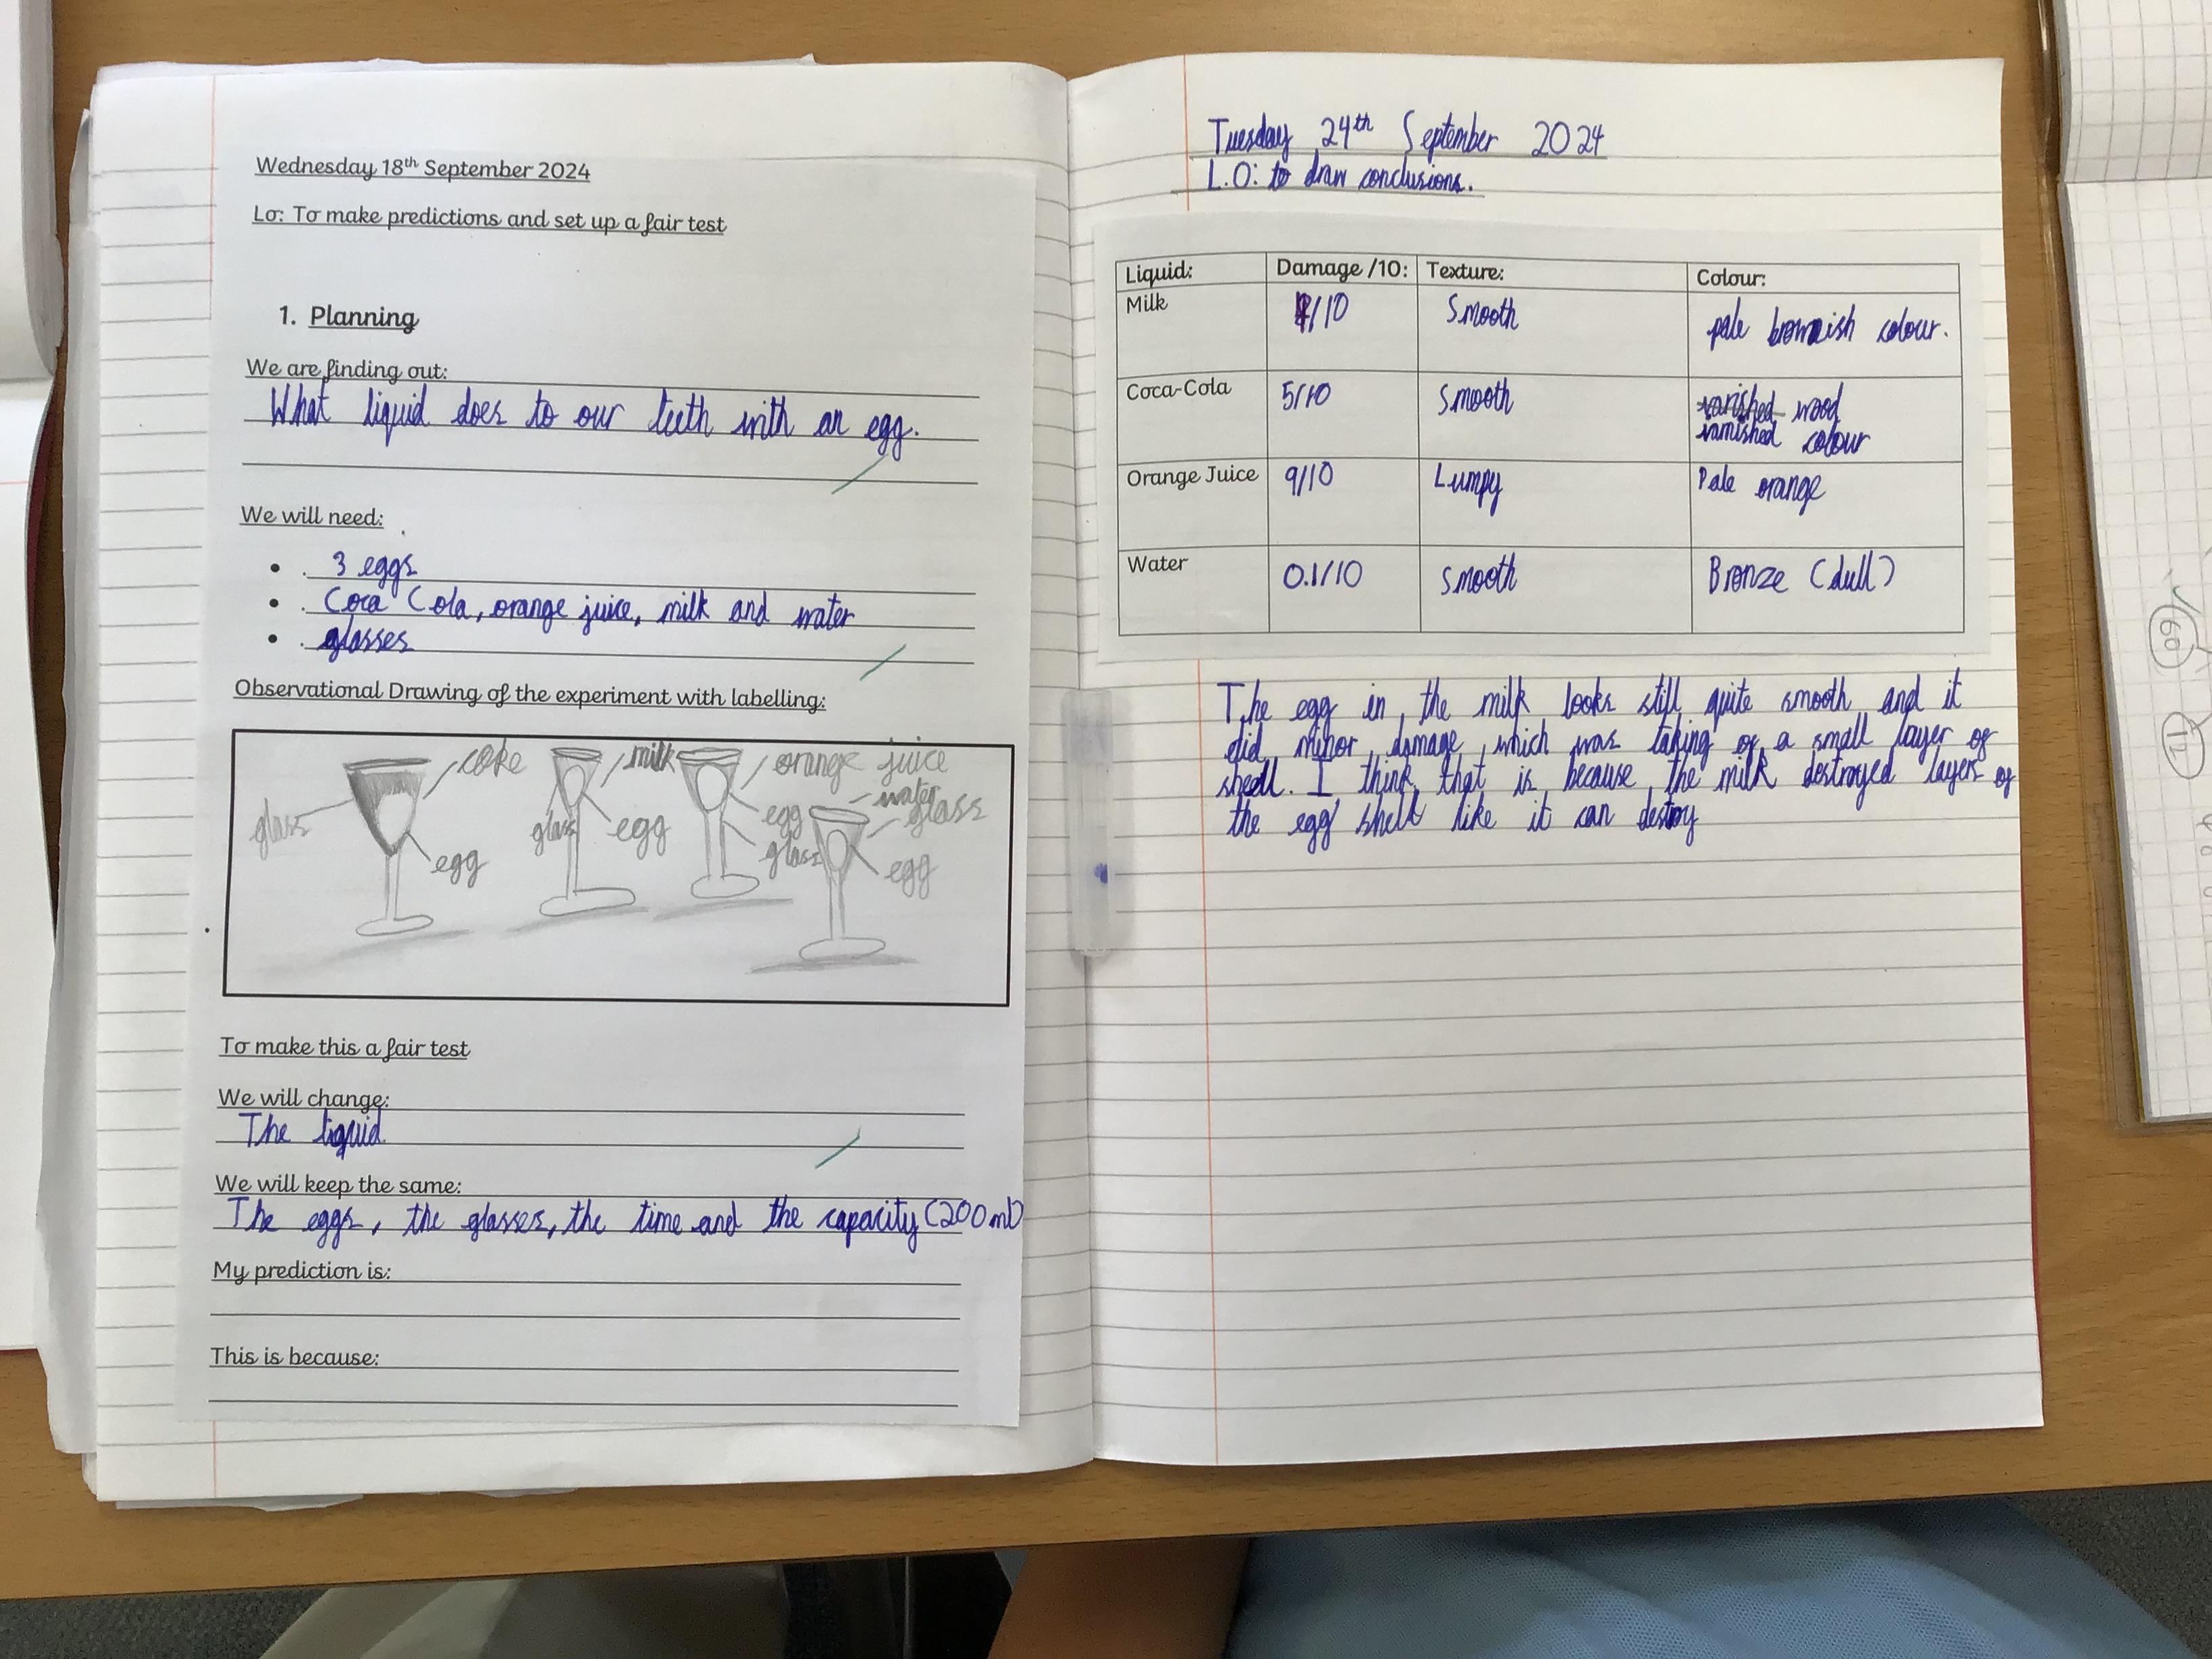 Wednesday 18th September 2024
Lo: To make predictions and set up a fair test
1. Planning
We are finding out:
What liquid does to our teeth with an egg.
We will need:
• . 3 eggs
• . Coca Cola, orange juice, milk and water
• . glasses
Observational Drawing of the experiment with labelling:
coke
milk
orange juice
water
glass
glass
egg
glass
egg
egg
glass
egg
To make this a fair test
We will change:
The liquid
We will keep the same:
The eggs, the glasses, the time and the capacity (200ml)
My prediction is:
This is because:
Tuesday 24th September 2024
L.O: to draw conclusions.
Liquid: Damage /10: Texture: Colour:
Milk /10 Smooth pale brownish colour.
Coca-Cola 5/10 Smooth wood
varnished colour
Orange Juice 9/10 Lumpy Pale orange
Water 0.1/10 Smooth Bronze (dull)
The egg in the milk looks still quite smooth and it
did minor damage which was taking of a small layer of
shell. I think that is because the milk destroyed layers of
the egg shell like it can destroy
60
12